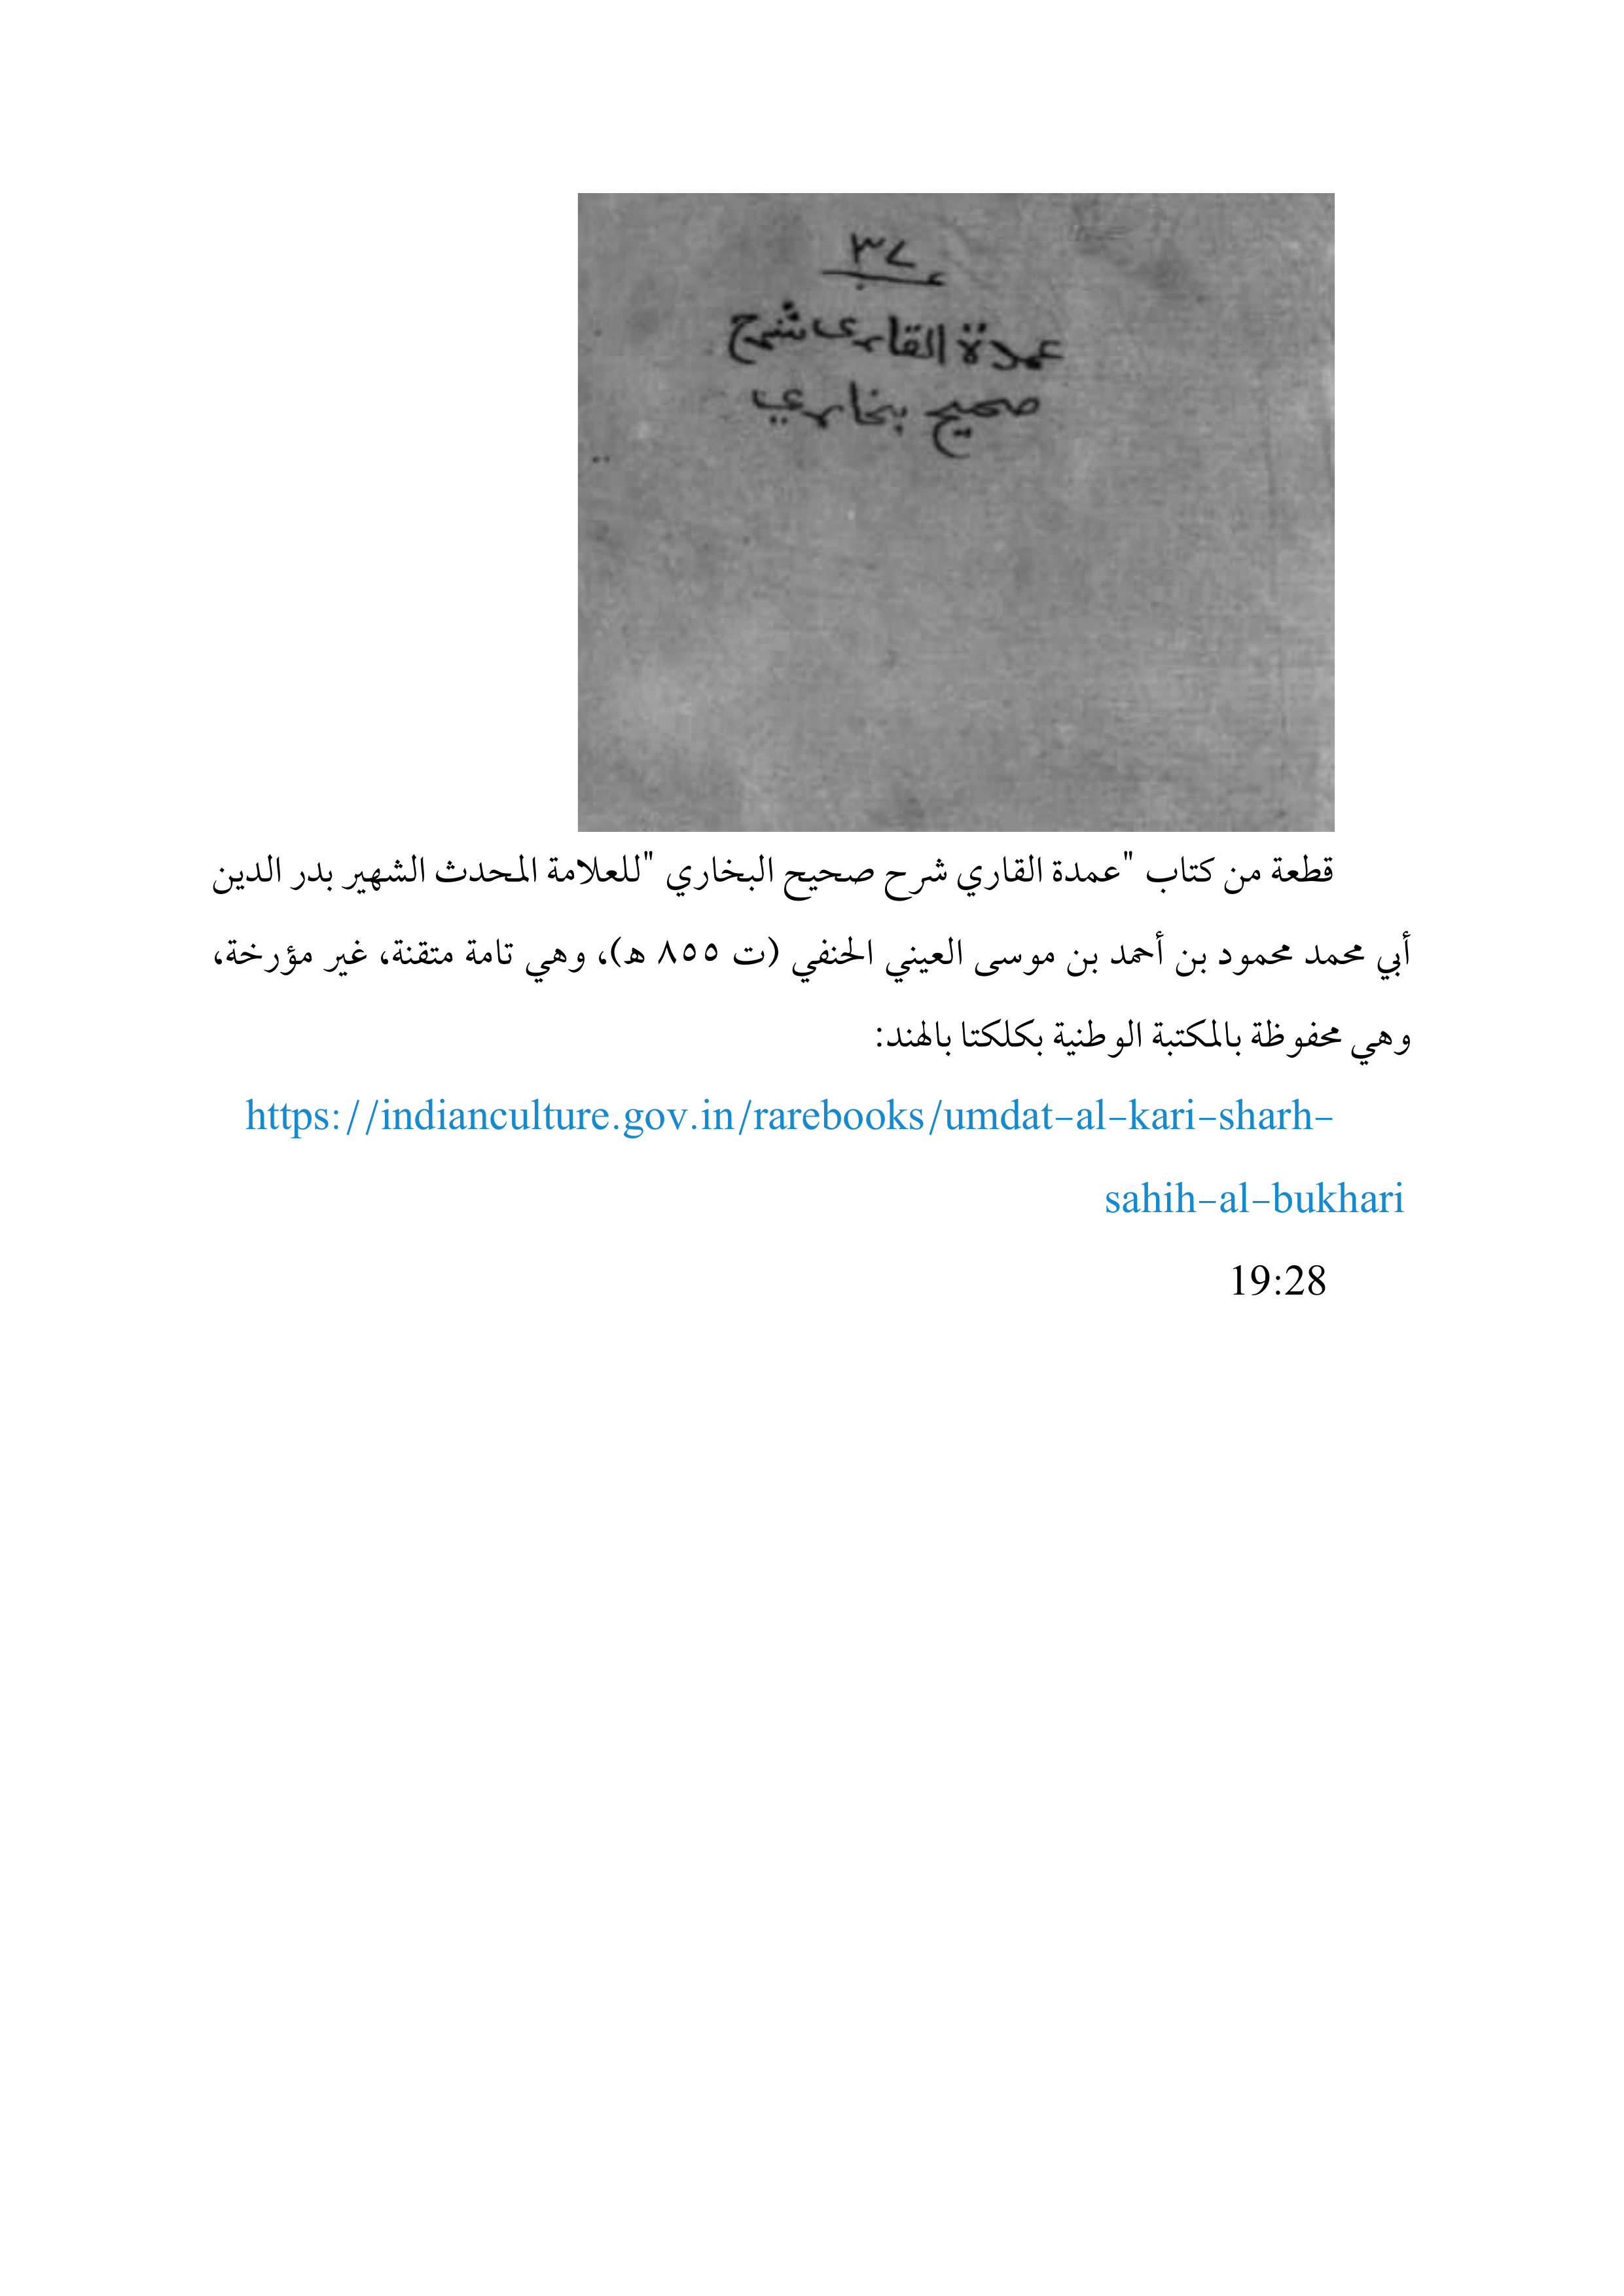 عمدة القارى شرح
صحيح بخاري
قطعة من كتاب "عمدة القاري شرح صحيح البخاري "للعلامة المحدث الشهير بدر الدين
أبي محمد محمود بن أحمد بن موسى العيني الحنفي (ت ٨٥٥ ه)، وهي تامة متقنة، غير مؤرخة،
وهي محفوظة بالمكتبة الوطنية بكلكتا بالهند:
https://indianculture.gov.in/rarebooks/umdat-al-kari-sharh-
sahih-al-bukhari
19:28